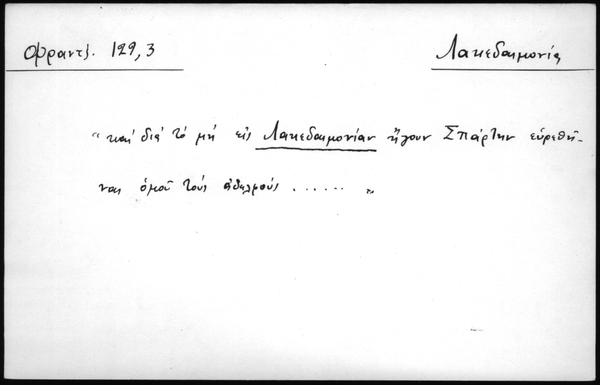 Φραντζ. 129,3
Λακεδαιμονία
"καὶ διὰ τὸ μὴ εἰς Λακεδαιμονίαν ἤγουν Σπάρτην εὑρεθῆ-
ναι ὁμοῦ τοὺς ἀδελφοὺς ...... "